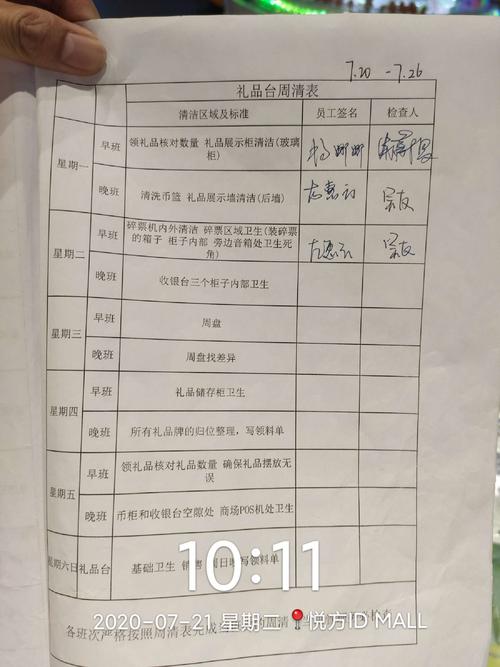 7.20 -7.26
礼品台周清表
清洁区域及标准 员工签名 检查人
星期一
早班 领礼品核对数量 礼品展示柜清洁(玻璃
柜)
晚班 清洗币篮 礼品展示墙清洁(后墙)
星期二
早班 碎票机内外清洁 碎票区域卫生(装碎票
的箱子 柜子内部 旁边音箱处卫生死
角)
晚班 收银台三个柜子内部卫生
星期三
早班 周盘
晚班 周盘找差异
星期四
早班 礼品储存柜卫生
晚班 所有礼品牌的归位整理,写领料单
星期五
早班 领礼品核对礼品数量 确保礼品摆放无
误
晚班 币柜和收银台空隙处 商场POS机处卫生
星期六日 礼品台 基础卫生 销售 周日晚写领料单
10:11
2020-07-21 星期二 悦方ID MALL
各班次严格按照周清表完成 的周清 检查